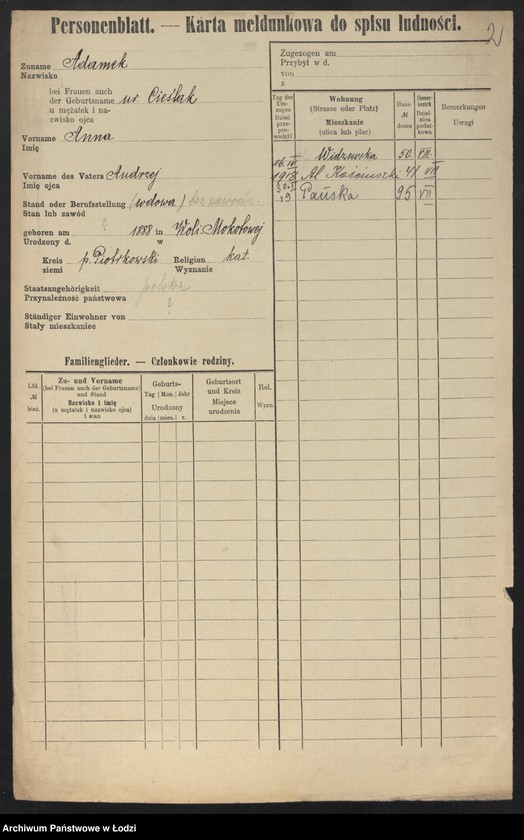 Personenblatt. — Karta meldunkowa do spisu ludności.
2
Zuname Adamek
Nazwisko
bei Frauen auch
der Geburtsname ur. Cieślak
u mężatek i na-
zwisko ojca
Vorname Anna
Imię
Vorname des Vaters Andrzej
Imię ojca
Stand oder Berufsstellung (wdowa)
Stan lub zawód
geboren am ? 1888 in Woli-Mokołowej
Urodzony d. w
Kreis p. Piotrkowski Religion kat.
ziemi Wyznanie
Staatsangehörigkeit polska
Przynależność państwowa
?
Ständiger Einwohner von
Stały mieszkaniec
Familienglieder. — Członkowie rodziny.
Lfd. № bież.
Zu- und Vorname
(bei Frauen auch der Geburtsname)
und Stand
Nazwisko i imię
(u mężatek i nazwisko ojca)
i stan
Geburts-
Tag Mon. Jahr
Urodzony
dnia mies. r.
Geburtsort
und Kreis
Miejsce
urodzenia
Rel.
Wyzn.
Zugezogen am
Przybył w d.
von
z
Tag des
Um-
zuges
Dzień
prze-
prowadzki
Wohnung
(Strasse oder Platz)
Mieszkanie
(ulica lub plac)
Haus-
№
domu
Steuer-
bezirk
Dziel-
nica
podat-
kowa
Bemerkungen
Uwagi
Widzewska 50 VIII
16.IV 1918 Al. Kościuszki 41 VII
30.II 19 Pańska 95 VII
Archiwum Państwowe w Łodzi